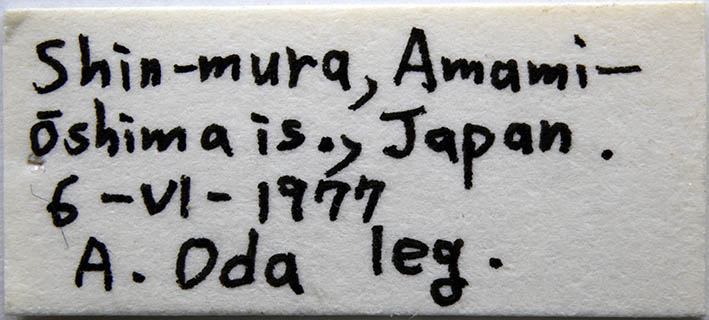 Shin-mura, Amami-
ōshima is., Japan.
6-VI-1977
A. Oda leg.